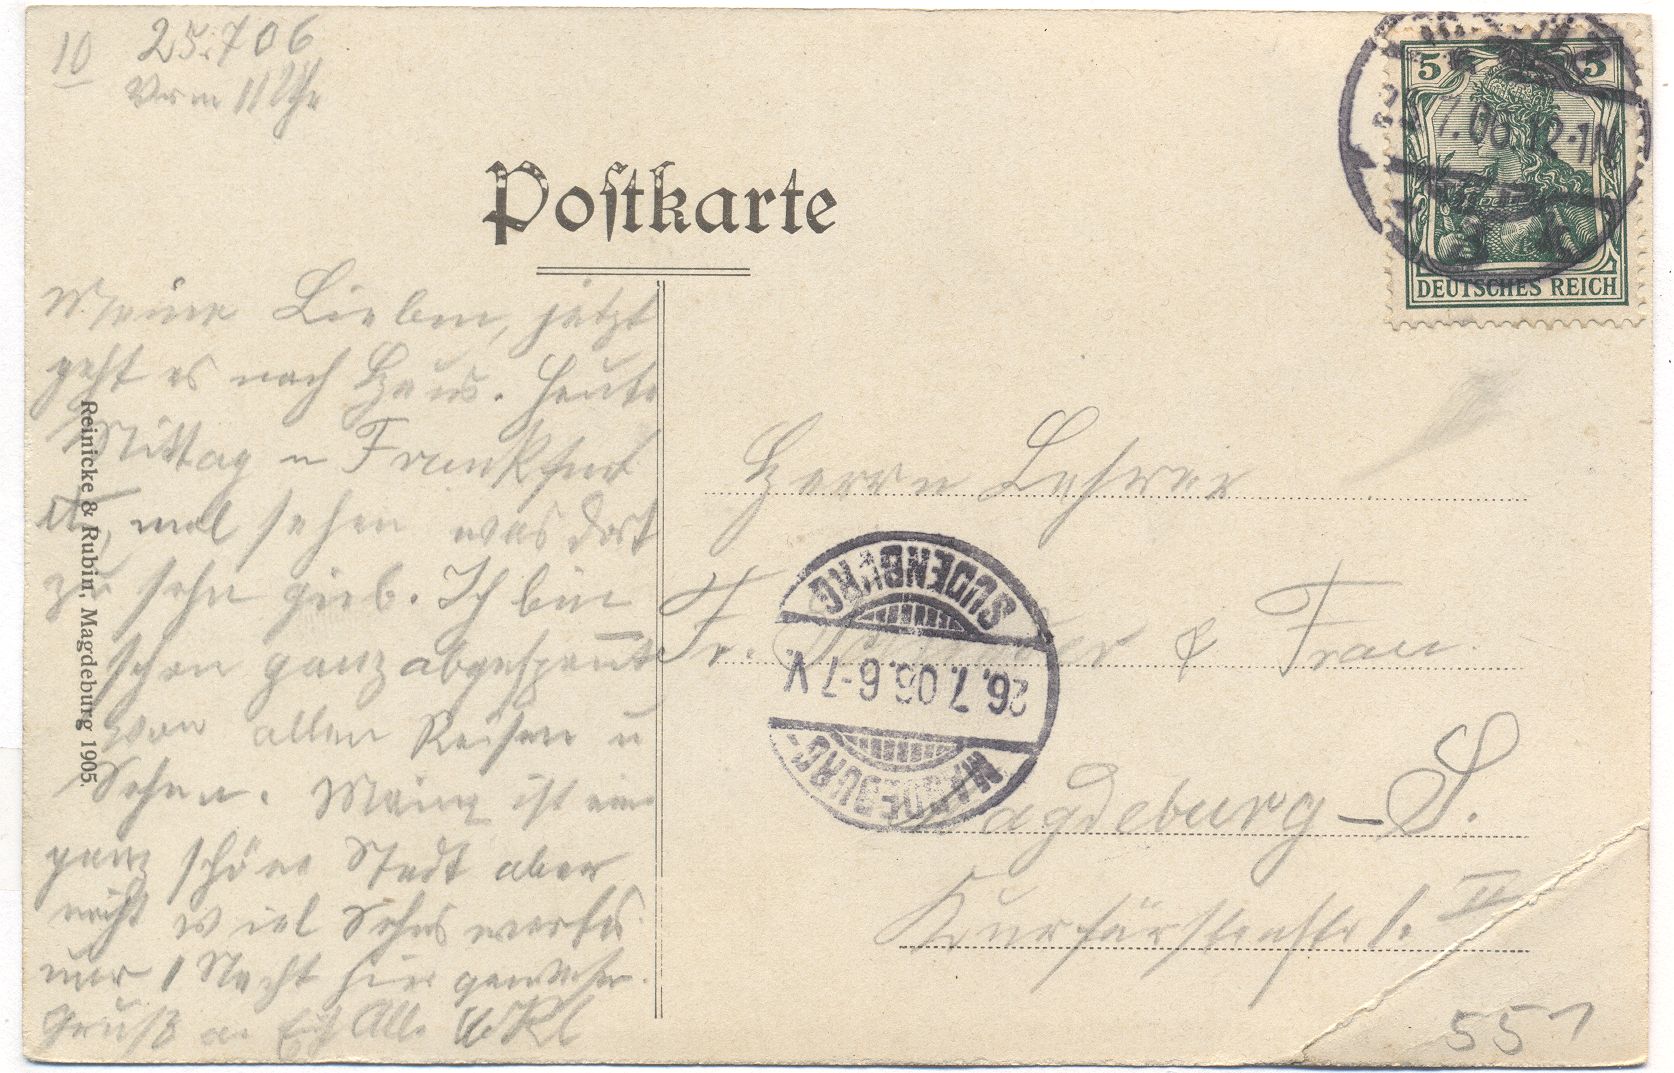 10
25.7 06
Vorm 11 Uhr
Postkarte
5 5
25.7.06. 12-1N
DEUTSCHES REICH
Meine Lieben, jetzt
geht es nach Haus. Heute
Mittag n Frankfurt
mal sehen was dort
zu sehn gieb. Ich bin
schon ganz abgespannt
von allen Reisen u
Sehen. Mainz ist eine
ganz schöne Stadt aber
nicht so viel Sehenswertes
nur 1 Nacht hier gewesen.
Gruß an Euch Alle
Reinicke & Rubin, Magdeburg 1905.
Herrn Lehrer
Fr. & Frau.
Magdeburg-S.
Kurfürstenstr. II
SUDENBURG
26.7.06.6-7V.
MAGDEBURG-
551